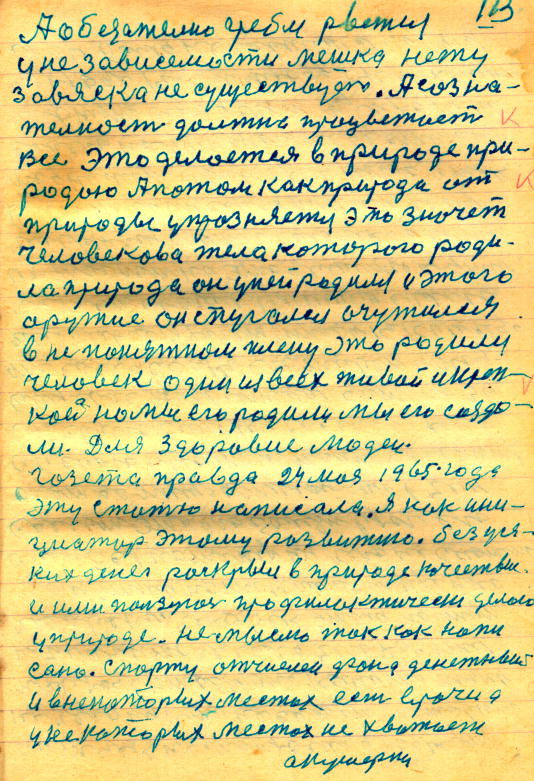 113
А обезателно гребли рветия
у не зависемости мешка нету
завяска не существует. А созна-
телност должна процветаст
все это делоется в природе при-
родою А потом как природа от
природы упрозняетя это значет
человекова тела которого роди-
ла природа он у ней родился и этого
аружие он стугался очутился
в не понятном плену это родили
человек один из всех живой и креп-
кой но мы его родили мы его создо-
ли. Для здоровие людей.
газета правда 24 мая 1965. года
эту статю написала. Я как ини-
циатор этому розвитю. без уся-
ких денег роскрыл в природе кочествы.
и ими ползуюя профилоктически делаю
у природе. не мыслю так как напи
сано. спорту отчислен фонд денежный
и в некоторых местах ест врачи а
у некоторых местах не хватает
акушерки